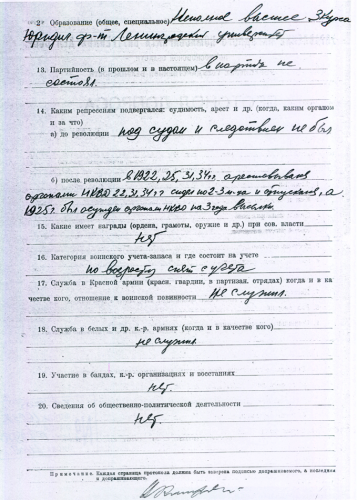 12. Образование (общее, специальное) Неполное высшее, 3 курса
Юридич. ф-т Ленинградский университет
13. Партийность (в прошлом и в настоящем) в партии не
состоял.
14. Каким репрессиям подвергался: судимость, арест и др. (когда, каким органом
и за что)
а) до революции под судом и следствием не был
б) после революции в 1922, 25, 31, 34 гг арестовывался
органами НКВД 22, 31, 34 гг сидел по 2-3 м-ца и отпускался, а
1925 г. был осужден органами НКВД на 3 года высылки.
15. Какие имеет награды (ордена, грамоты, оружие и др.) при сов. власти
нет
16. Категория воинского учета-запаса и где состоит на учете
по возрасту снят с учета
17. Служба в Красной армии (красн. гвардии, в партизан. отрядах) когда и в ка
честве кого, отношение к воинской повинности не служил.
18. Служба в белых и др. к.-р. армиях (когда и в качестве кого)
не служил
19. Участие в бандах, к.-р. организациях и восстаниях
нет.
20. Сведения об общественно-политической деятельности
нет.
Примечание. Каждая страница протокола должна быть заверена подписью допрашиваемого, а последняя
и допрашивающего.